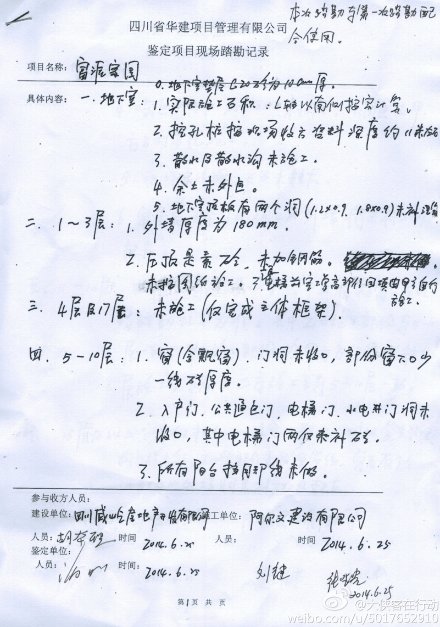 本次踏勘与第一次踏勘配合使用.
四川省华建项目管理有限公司
鉴定项目现场踏勘记录
项目名称: 富源家园
0. 地下室垫层C20砼为10cm厚.
具体内容: 一. 地下室: 1. 实际施工面积: 轴以南何按实计算.
2. 挖孔桩按现场收方资料深度约11米左右
3. 散水及散水沟未施工.
4. 余土未外运.
5. 地下室底板有两个洞(1.2×0.9, 1.8×0.9)未补
二. 1～3层: 1. 外墙厚度为180mm.
2. 压顶是素砼, 未加钢筋.
未按图纸施工. 3.
三. 4层及17层: 未施工(仅完成主体框架).
四. 5-10层: 1. 窗(含飘窗). 门洞未收口, 部份窗下口少
一线砖厚度.
2. 入户门. 公共通道门, 电梯门, 水电井门洞未
收口, 其中电梯门两侧未补砼.
3. 所有阳台挂网部线未做.
参与收方人员:
建设单位: 四川 房地产开发有限公司 施工单位: 阿尔文建设有限公司
人员: 时间 2014.6.25 人员: 时间 2014.6.25
鉴定单位:
人员: 时间: 2014.6.25 2014.6.25
第1页 共 页
@大侠客在行动
weibo.com/u/5017652910